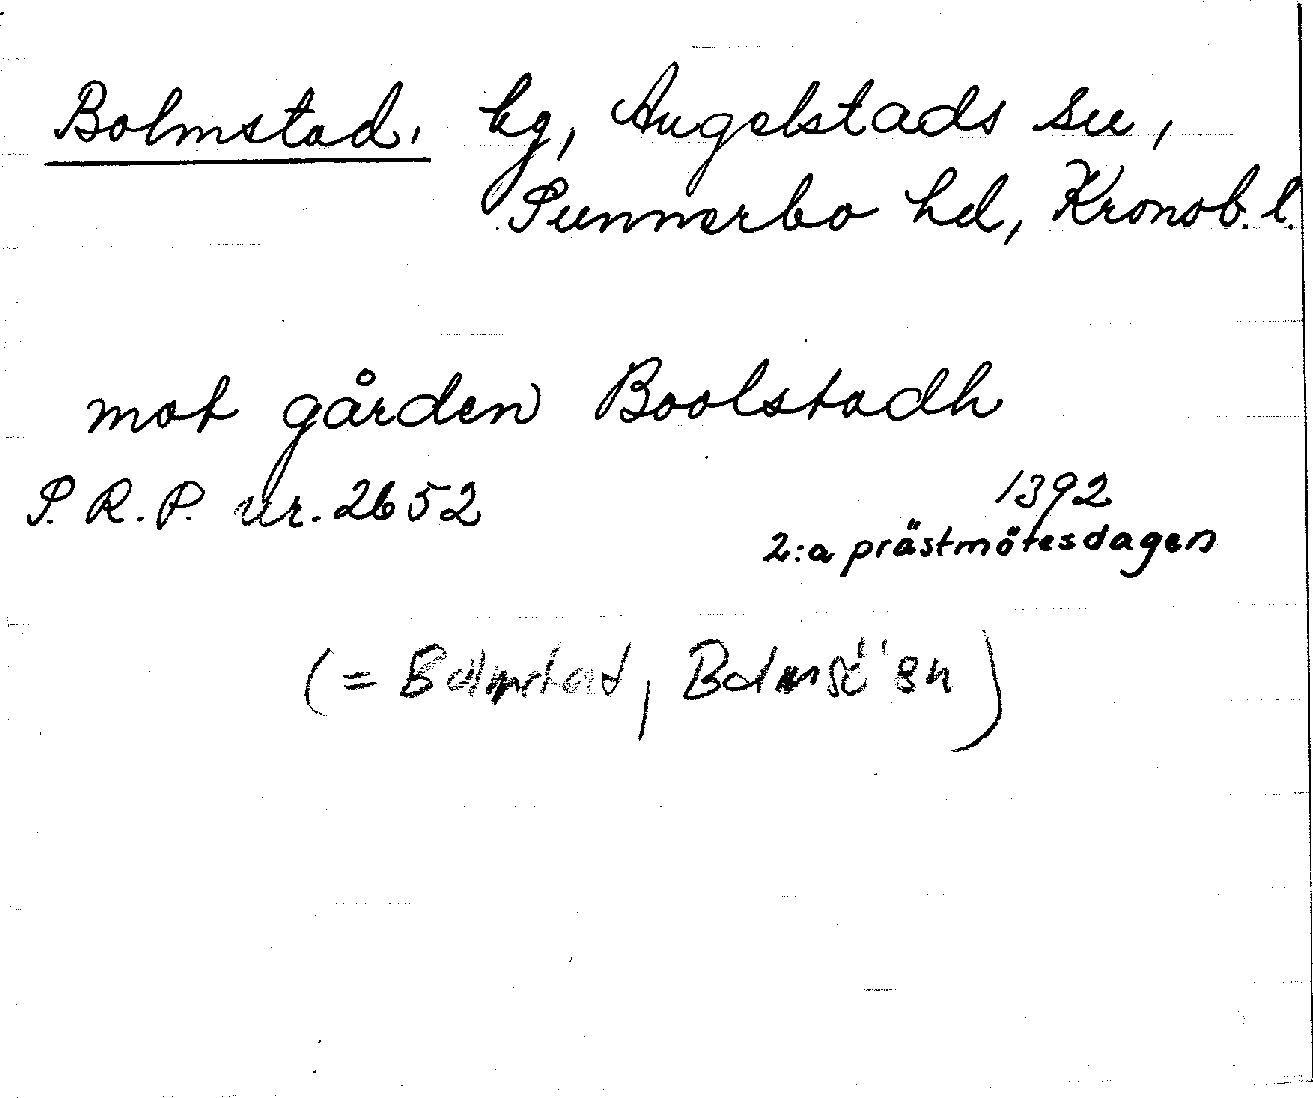 Bolmstad, by, Angelstads sn,
Sunnerbo hd, Kronob. l.
mot gården Boolstadh
S. R. P. nr. 2652
1392
2:a prästmötesdagen
(= Bolmstad, Bolmsö sn)